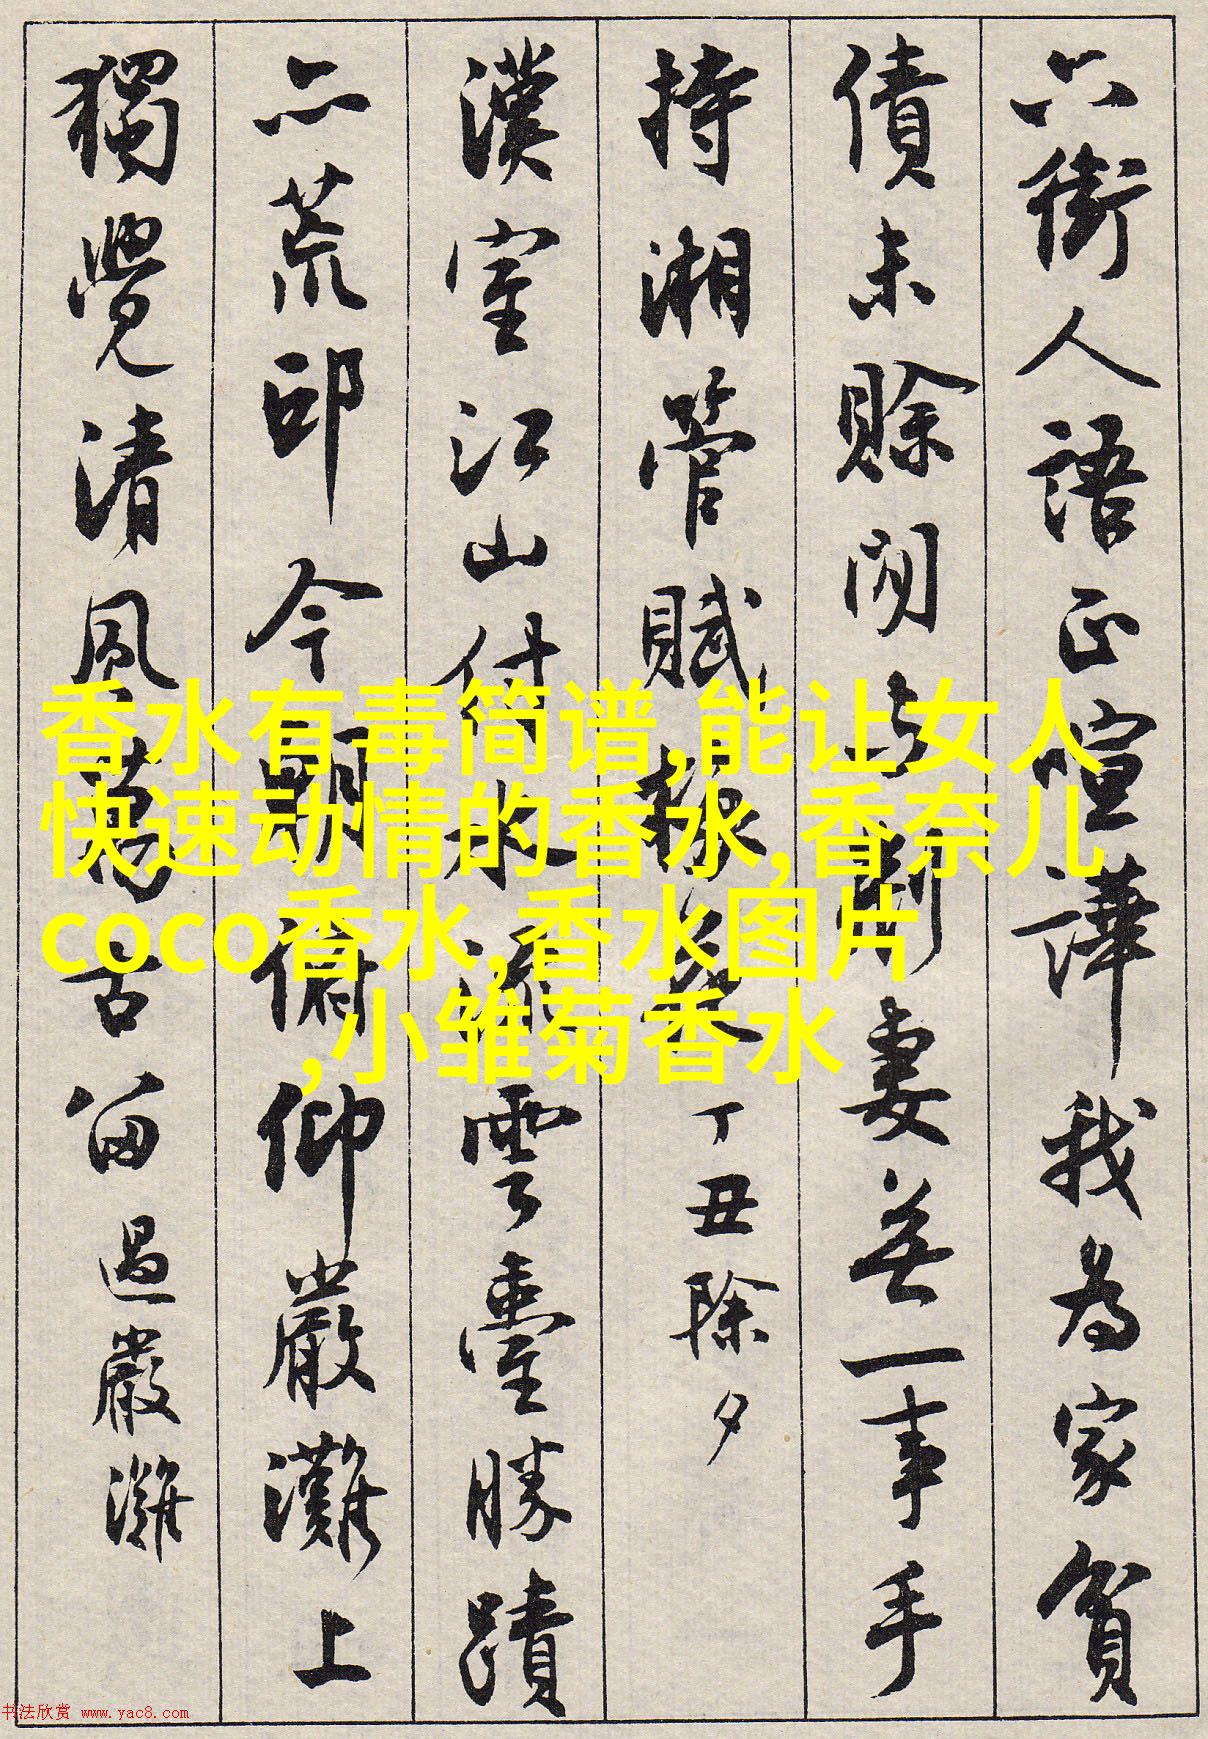 六街人語正喧譁我為家貧
債未賒閒与荆妻無一事手
持湘管賦椒花丁丑除夕
漢室江山付水流雲臺勝蹟
亦荒邱今朝俯仰嚴灘上
獨覺清風萬古留過嚴灘
香水有毒简谱,能让女人
快速动情的香水,香奈儿
coco香水,香水图片
,小雏菊香水
书法欣赏 www.yac8.com